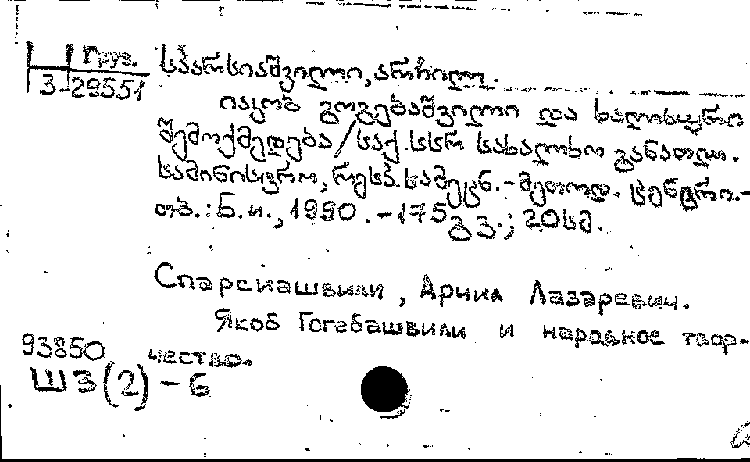 Груз.
3-29551
სპარსიაშვილი, არჩილ.
იაკობ გოგებაშვილი და ხალხური
შემოქმედება / საქ. სსრ სახალხო განათლ.
სამინისტრო, რესპ. სამეცნ.-მეთოდ. ცენტრი.-
თბ.: Б.и., 1990.-175 გვ.; 20 სმ.
Спарсиашвили, Арчил Лазаревич.
Якоб Гогебашвили и народное твор-
93850 чество.
Ш3(2)-6